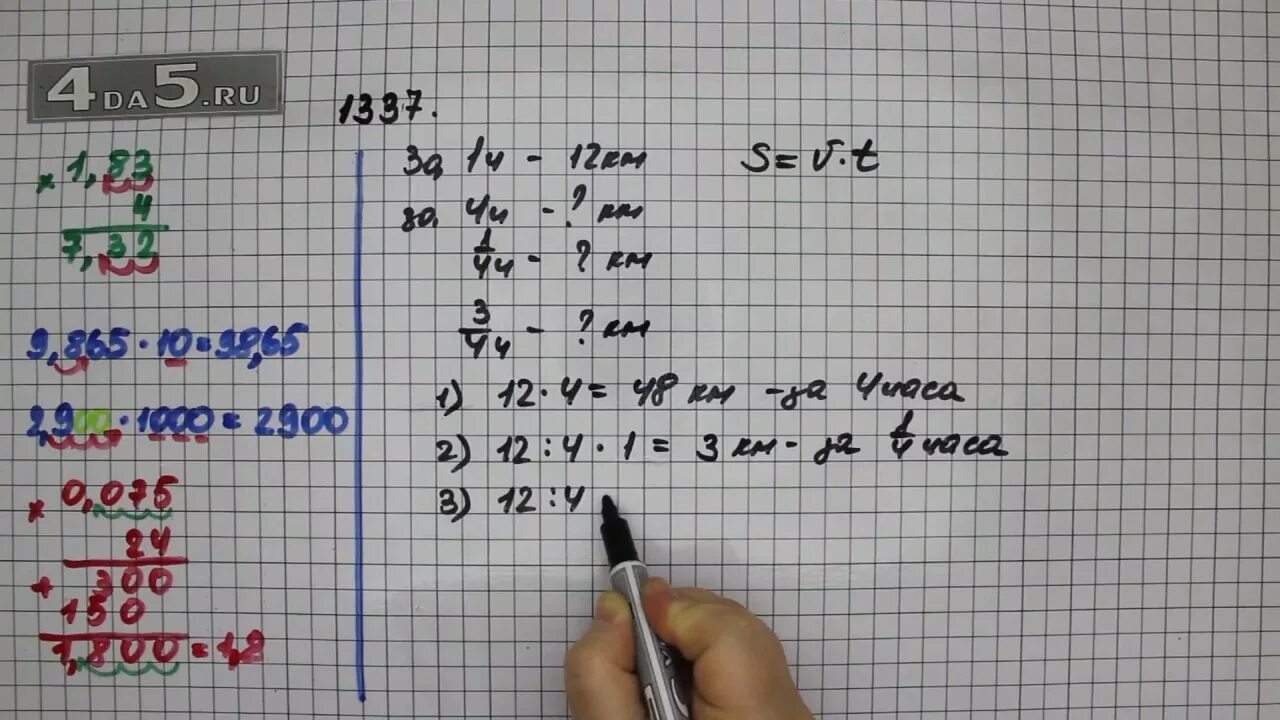 4DA5.RU
1337.
× 1,83
4
7,32
9,865 · 10 = 98,65
2,900 · 1000 = 2900
× 0,075
24
+ 300
150
1,800 = 1,8
За 1ч - 12км
S = v · t
за 4ч - ? км
1/4ч - ? км
3/4ч - ? км
1) 12 · 4 = 48 км - за 4 часа
2) 12 : 4 · 1 = 3 км - за 1/4 часа
3) 12 : 4